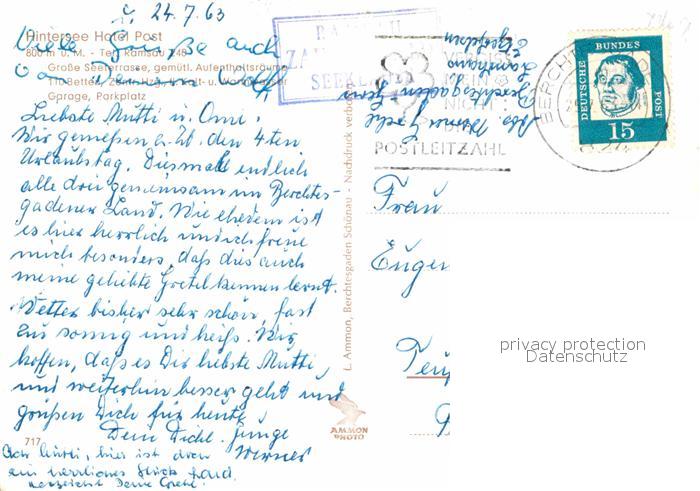 24.7.63
Hintersee Hotel Post
800 m ü. M. - Tel. Ramsau 245
Große Seeterrasse, gemütl. Aufenthaltsräume
110 Betten, Zentr. Hzg., Kalt- u. Warmwasser
Garage, Parkplatz
Viele Grüße auch
von Deinem
Liebste Mutti u. Omi.
Wir genießen z. Zt. den 4ten
Urlaubstag. Diesmal endlich
alle drei gemeinsam im Berchtes-
gadener Land. Wie ehedem ist
es hier herrlich und ich freue
mich besonders, daß dies auch
meine geliebte Gretel kennen lernt.
Wetter bisher sehr schön, fast
zu sonnig und heiß. Wir
hoffen, daß es Dir liebste Mutti
und weiterhin besser geht und
grüßen Dich für heute
Dein Dichl. Junge
Werner
Ach Mutti, hier ist
ein herrliches Stück Land.
herzlichst Deine Gretel.
717
L. Ammon, Berchtesgaden Schönau - Nachdruck verboten
AMMON
PHOTO
RAMSAU
SEEKL
NICHT
DIE
POSTLEITZAHL
BERCHT
DEUTSCHE BUNDES POST
15
Abs. Werner
Berchtesgaden
Frau
Eugen
privacy protection
Datenschutz